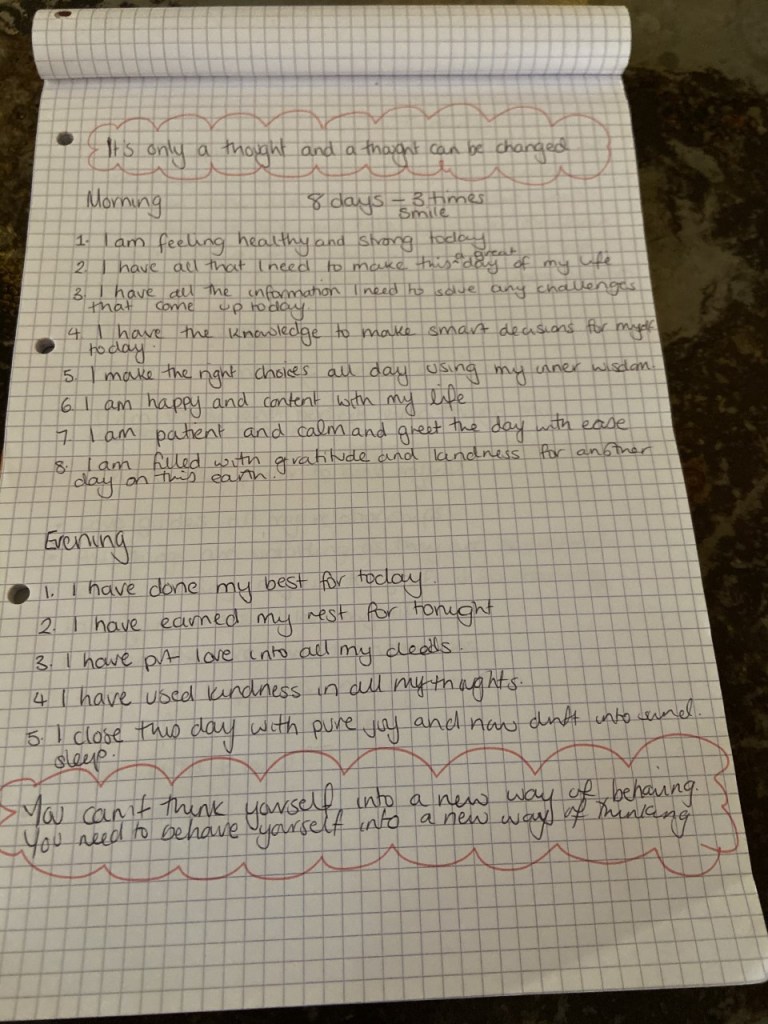 It's only a thought and a thought can be changed
Morning 8 days - 3 times
smile
1. I am feeling healthy and strong today
2. I have all that I need to make this a great day of my life
3. I have all the information I need to solve any challenges
that come up today
4 I have the knowledge to make smart decisions for myself
today.
5. I make the right choices all day using my inner wisdom.
6. I am happy and content with my life
7. I am patient and calm and greet the day with ease
8. I am filled with gratitude and kindness for another
day on this earth.
Evening
1. I have done my best for today.
2. I have earned my rest for tonight
3. I have put love into all my deeds.
4 I have used kindness in all my thoughts.
5. I close this day with pure joy and now drift into
sleep.
You can't think yourself into a new way of behaving.
You need to behave yourself into a new way of thinking